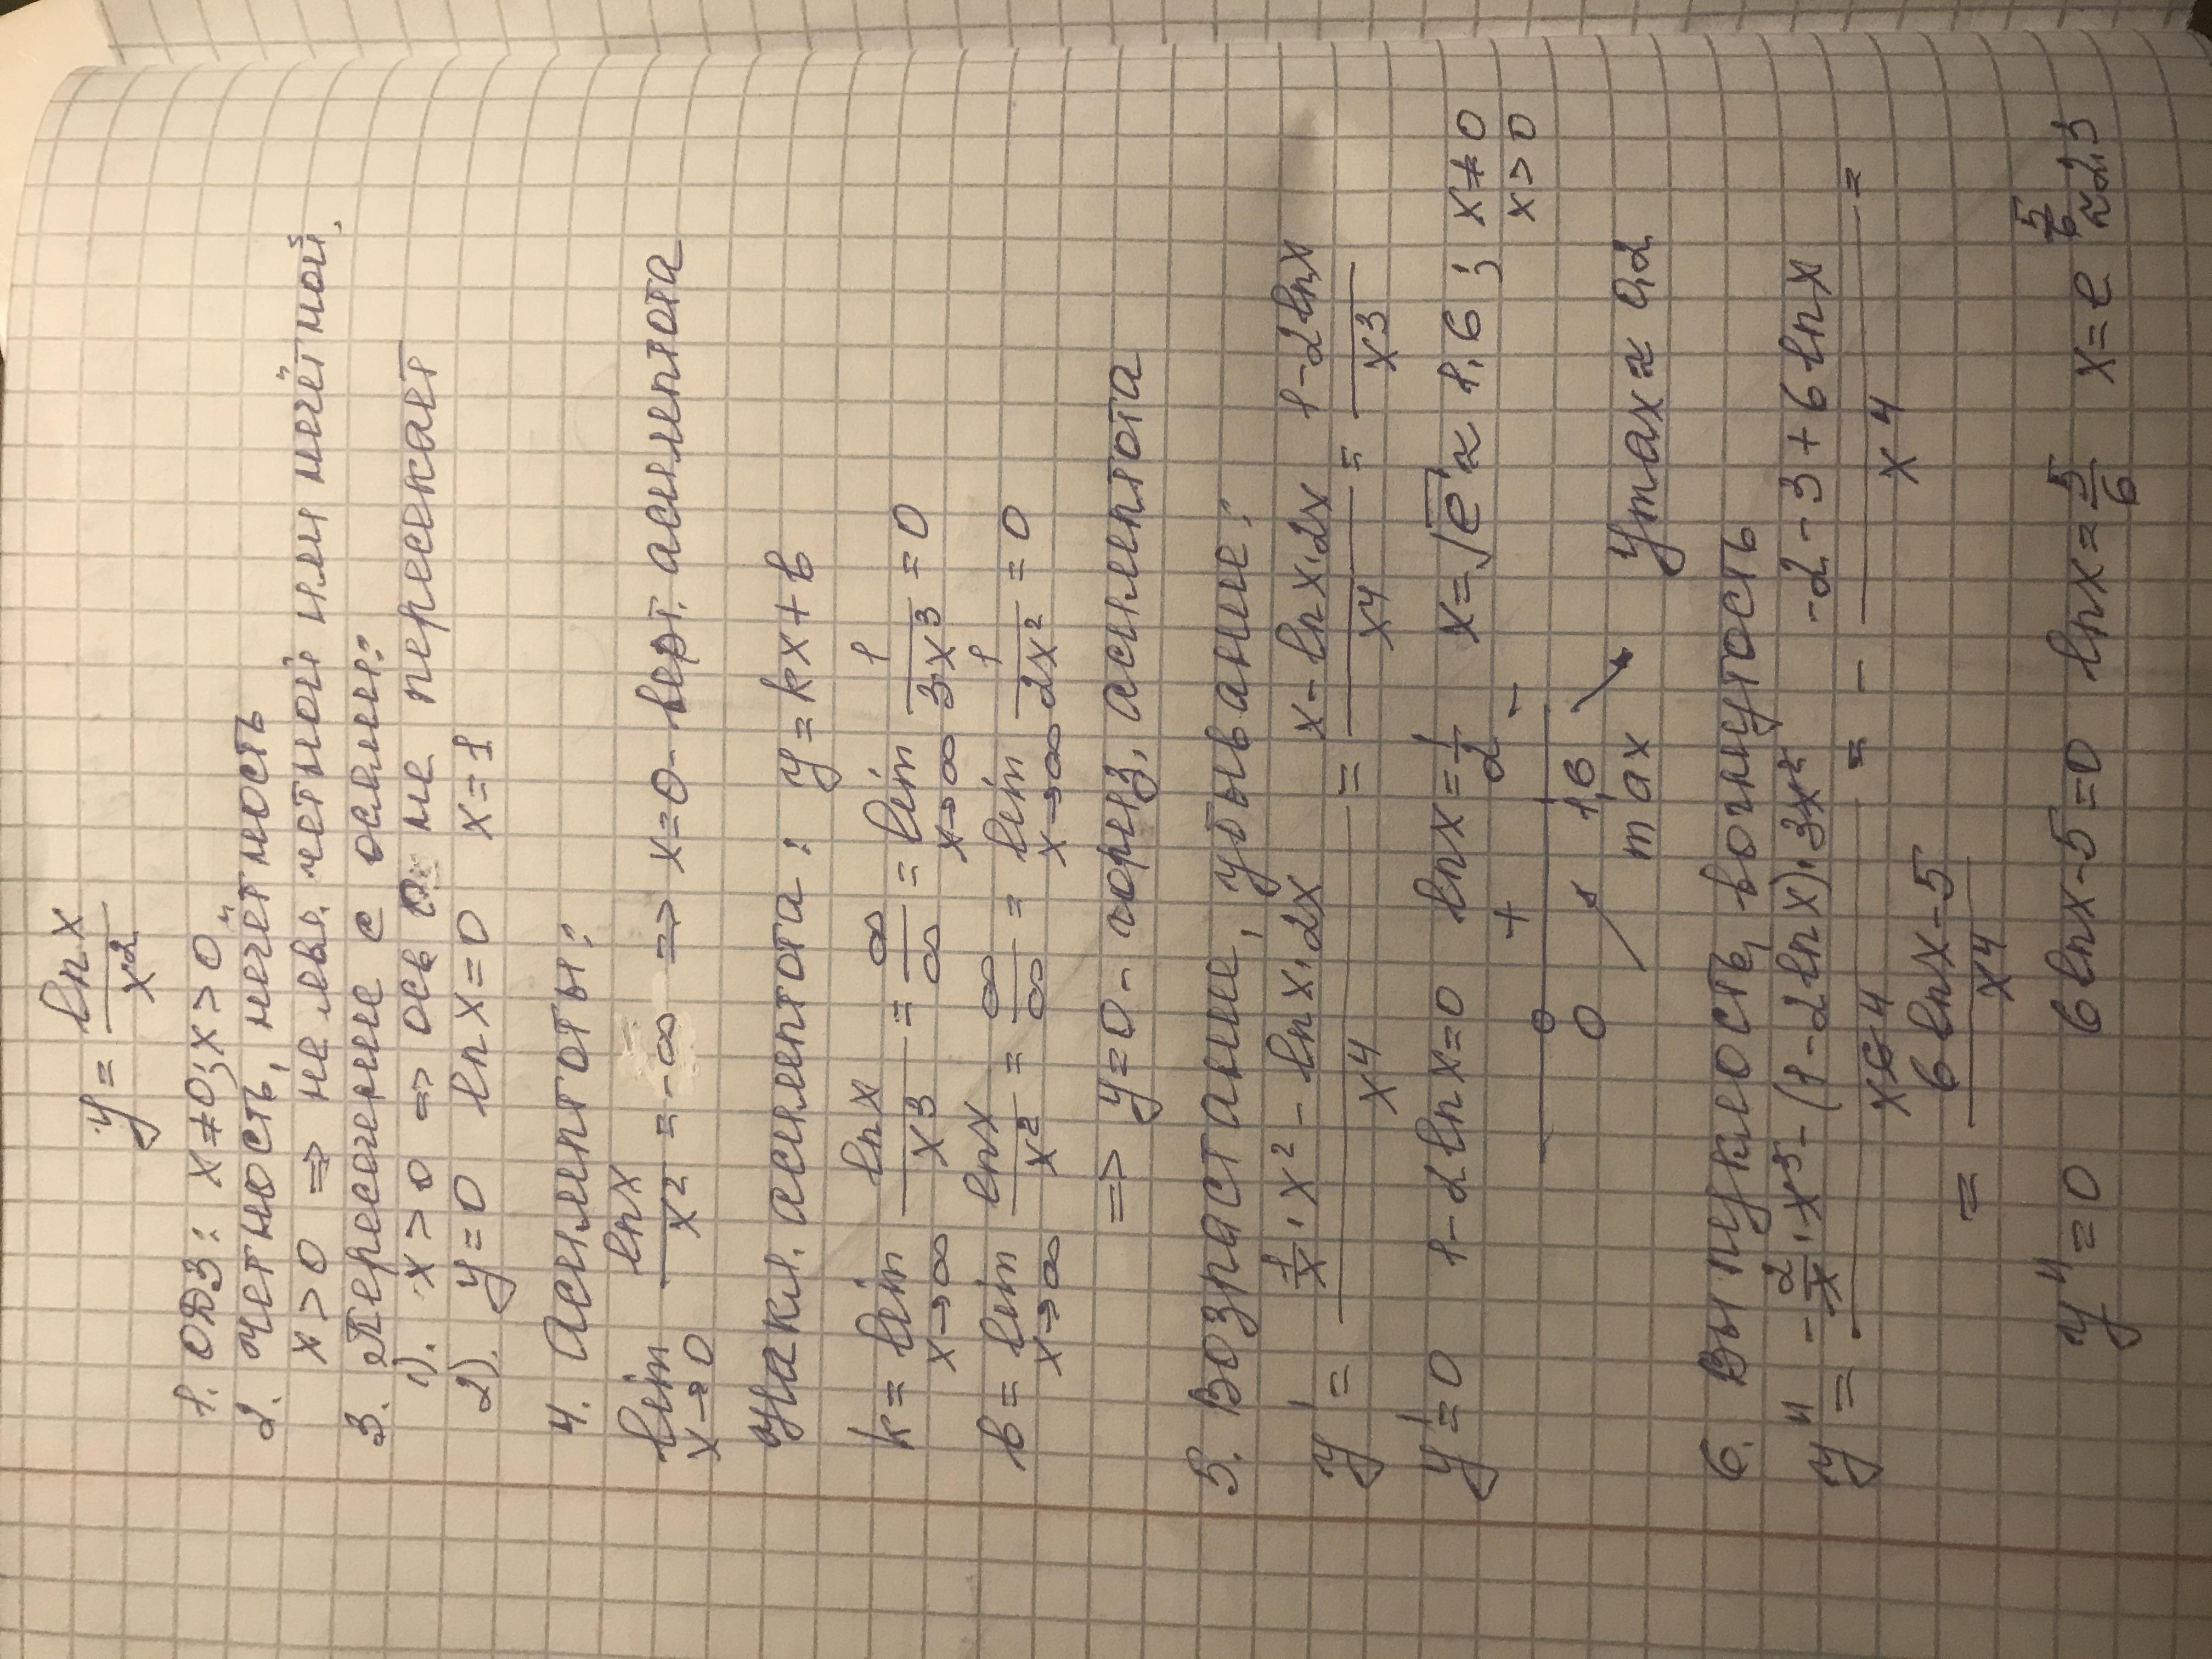 y = ln x / x²
1. ОДЗ: x ≠ 0; x > 0
2. четность, нечётность
x > 0 => не явл. четной или нечётной.
3. Пересечение с осями:
1). x > 0 => ось Oy не пересекает
2). y = 0 ln x = 0 x = 1
4. Асимптоты:
lim x→0 ln x / x² = -∞ => x = 0 - верт. асимптота
Накл. асимптота: y = kx + b
k = lim x→∞ ln x / x³ = ∞/∞ = lim x→∞ 1 / 3x³ = 0
b = lim x→∞ ln x / x² = ∞/∞ = lim x→∞ 1 / 2x² = 0
=> y = 0 - гориз. асимптота
5. Возрастание, убывание:
y' = (1/x · x² - ln x · 2x) / x⁴ = (x - ln x · 2x) / x⁴ = (1 - 2 ln x) / x³
y' = 0 1 - 2 ln x = 0 ln x = 1/2 x = √e ≈ 1,6 ; x ≠ 0
x > 0
+ -
0 1,6
max ymax ≈ 0,2
6. Выпуклость, вогнутость
y'' = (-2/x · x³ - (1 - 2 ln x) · 3x²) / x⁶ 4 = - (-2 - 3 + 6 ln x) / x⁴ =
= (6 ln x - 5) / x⁴
y'' = 0 6 ln x - 5 = 0 ln x = 5/6 x = e^(5/6) ≈ 2,3